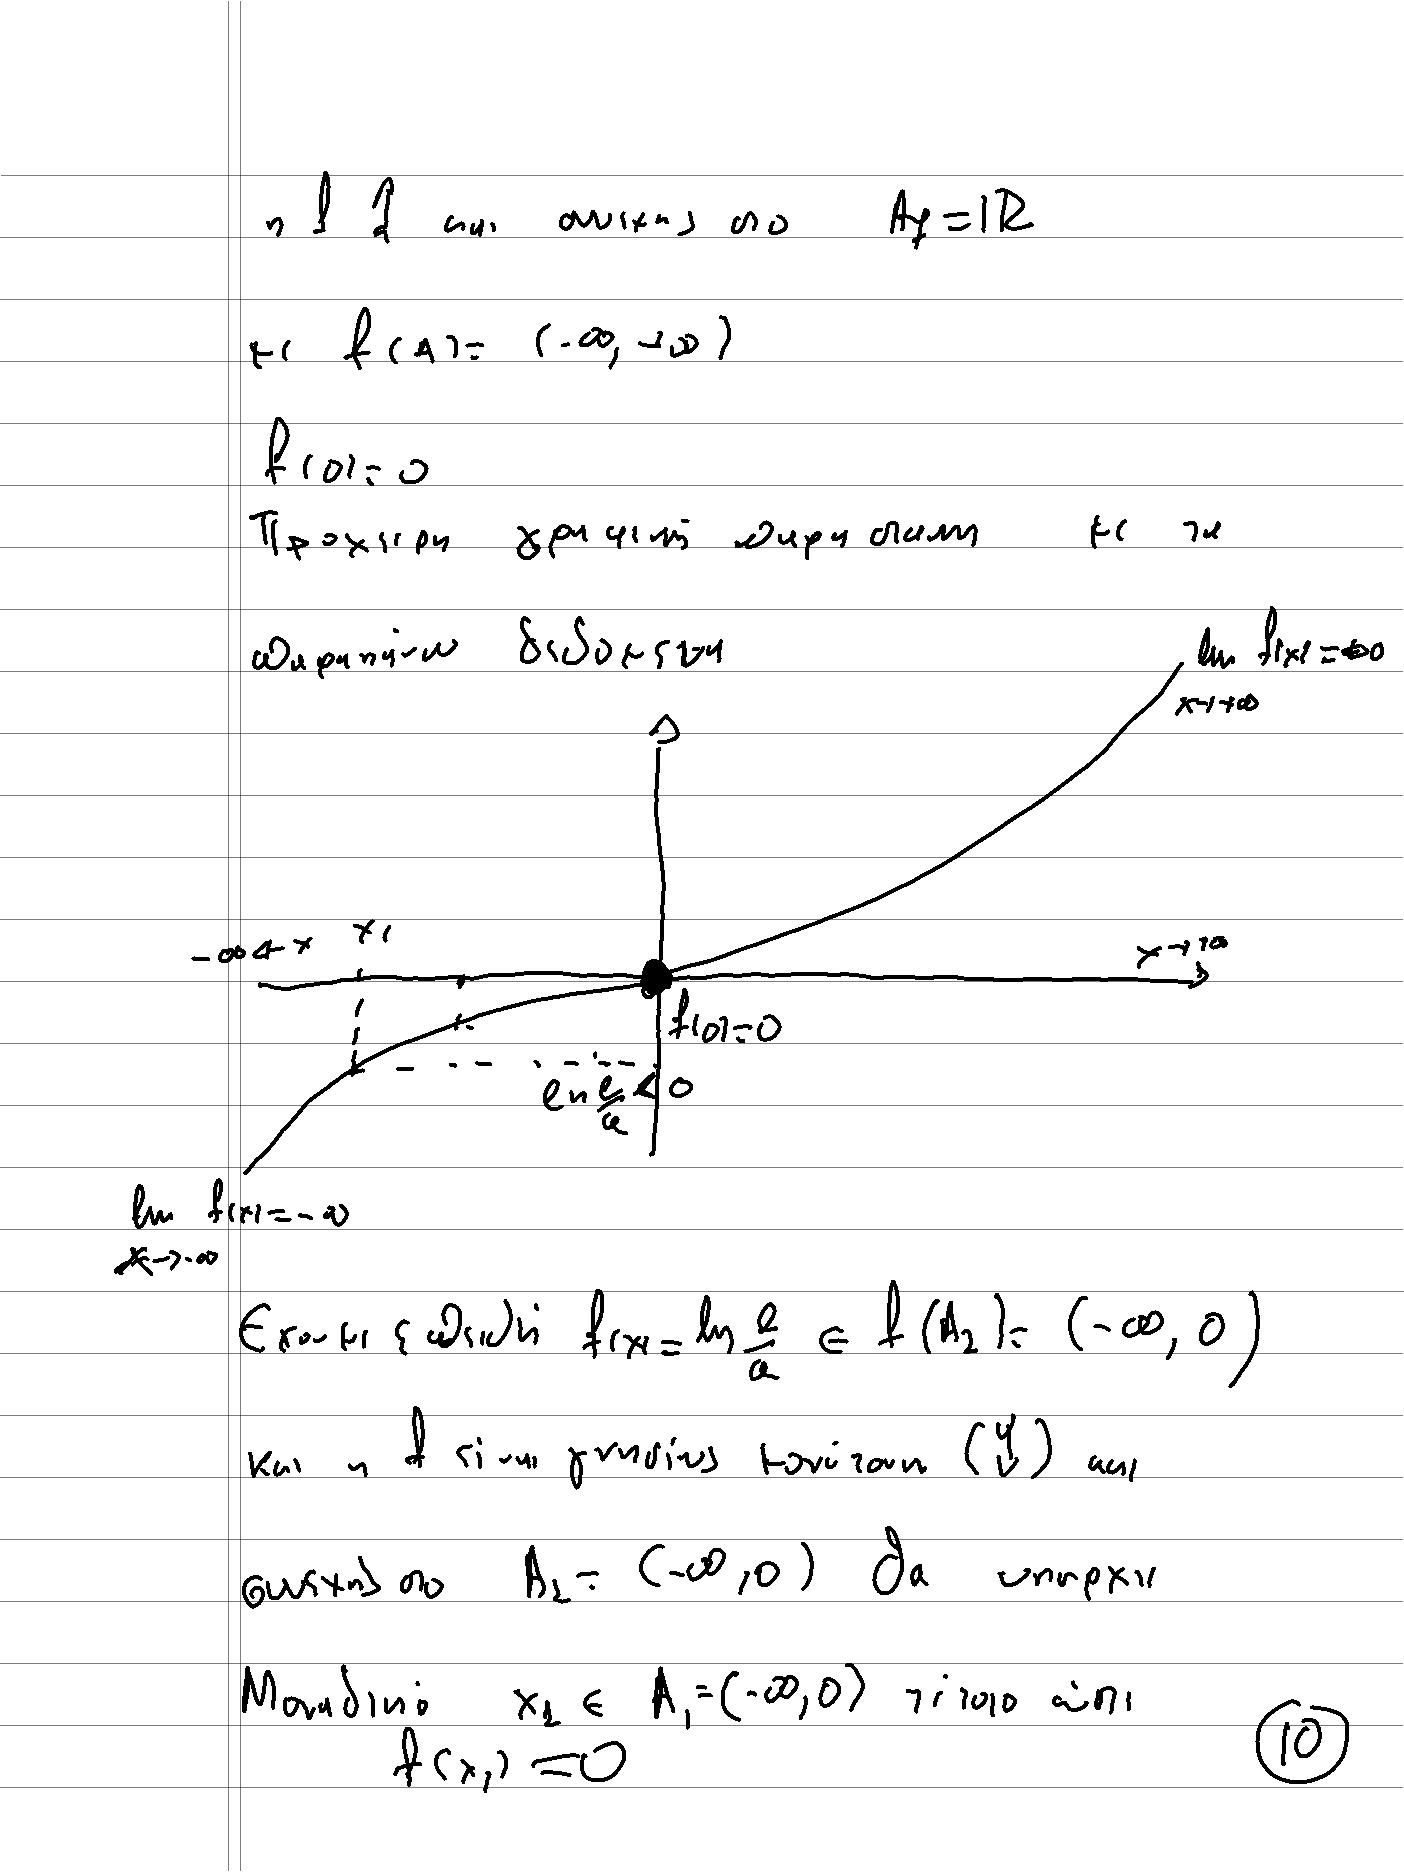 η f ↑ και συνεχης στο A_f = ℝ
με f(A) = (-∞, +∞)
f(0) = 0
Προχειρη γραφική παρασταση με τα
παραπάνω δεδομενα
lim f(x) = +∞
x→+∞
-∞ ← x x₁ x→+∞
f(0) = 0
ln e/a < 0
lim f(x) = -∞
x→-∞
Εχουμε επειδή f(x) = ln e/a ∈ f(A₂) = (-∞, 0)
και η f είναι γνησίως μονότονη και
συνεχης στο A₂ = (-∞, 0) θα υπαρχει
Μοναδικό x₁ ∈ A₁ = (-∞, 0) τέτοιο ώστε
f(x₁) = 0
10